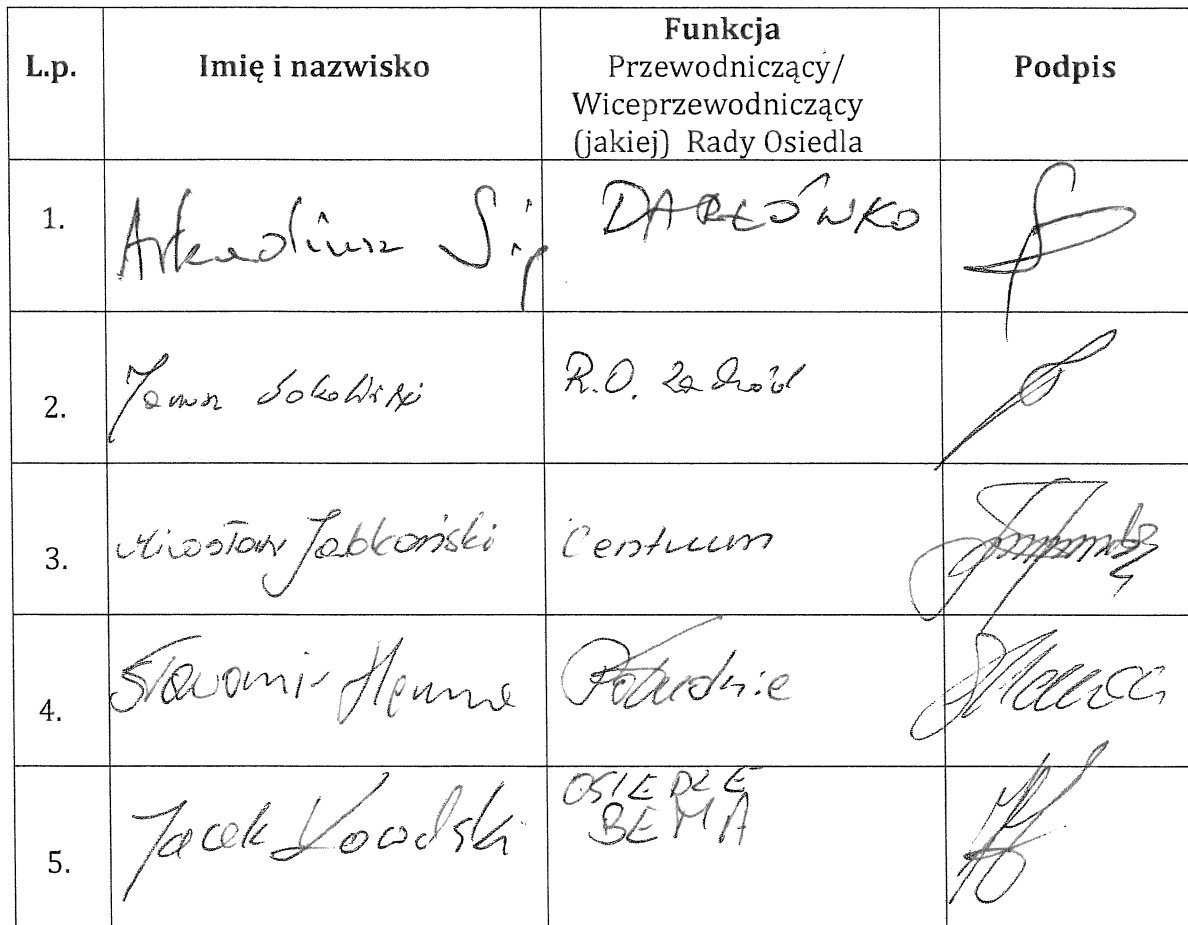 L.p. Imię i nazwisko Funkcja Przewodniczący/ Wiceprzewodniczący (jakiej) Rady Osiedla Podpis
1. Arkadiusz Sip DARŁÓWKO
2. Janusz R.O. Zachód
3. Mirosław Jabłoński Centrum
4. Sławomir Południe
5. Jacek OSIEDLE BEMA